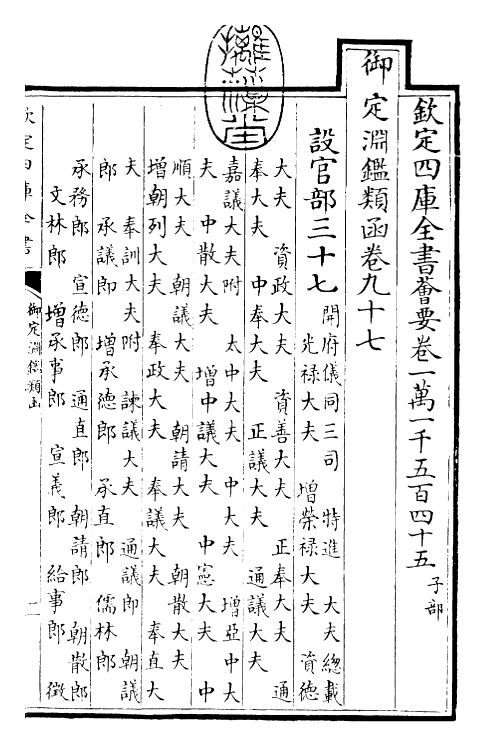 摛藻堂
欽定四庫全書薈要卷一萬一千五百四十五 子部
御定淵鑑類函卷九十七
設官部三十七
開府儀同三司 特進 大夫總載
光禄大夫 增榮禄大夫 資德
大夫 資政大夫 資善大夫 正奉大夫 通
奉大夫 中奉大夫 正議大夫 通議大夫
嘉議大夫附 太中大夫 中大夫 增亞中大
夫 中散大夫 增中議大夫 中憲大夫 中
順大夫 朝議大夫 朝請大夫 朝散大夫
增朝列大夫 奉政大夫 奉議大夫 奉直大
夫 奉訓大夫附 諫議大夫 通議郎 朝議
郎 承議郎 增承德郎 承直郎 儒林郎
承務郎 宣德郎 通直郎 朝請郎 朝散郎
文林郎 增承事郎 宣義郎 給事郎 徵
欽定四庫全書
御定淵鑑類函